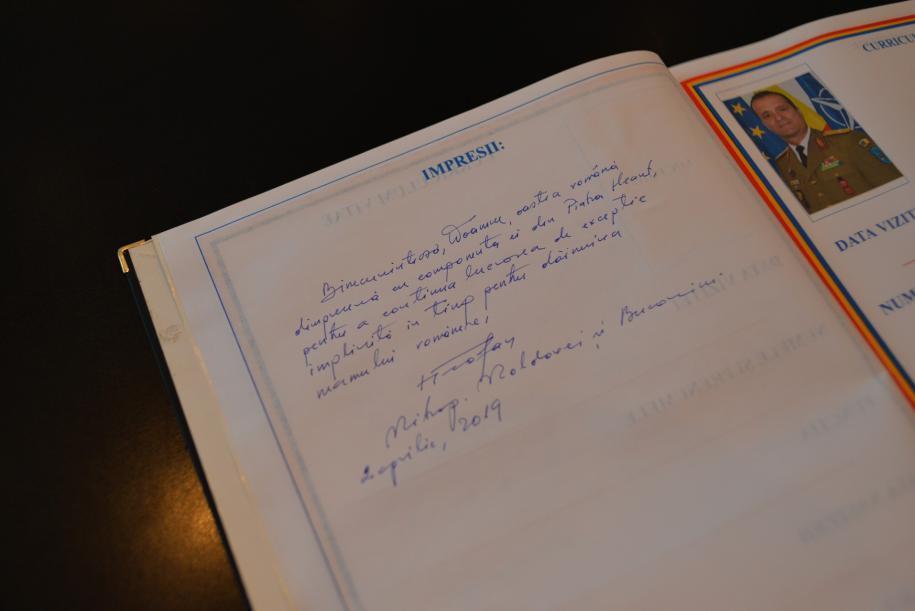 IMPRESII:
Binecuvintează, Doamne, oastea română
dimpreună cu componenta ei din Piatra Neamț,
pentru a continua lucrarea de excepție
împlinită în timp pentru dăinuirea
neamului românesc,
† Teofan
Mitrop. Moldovei și Bucovinei
2 aprilie, 2019
CURRICU
DATA VIZITE
NUM